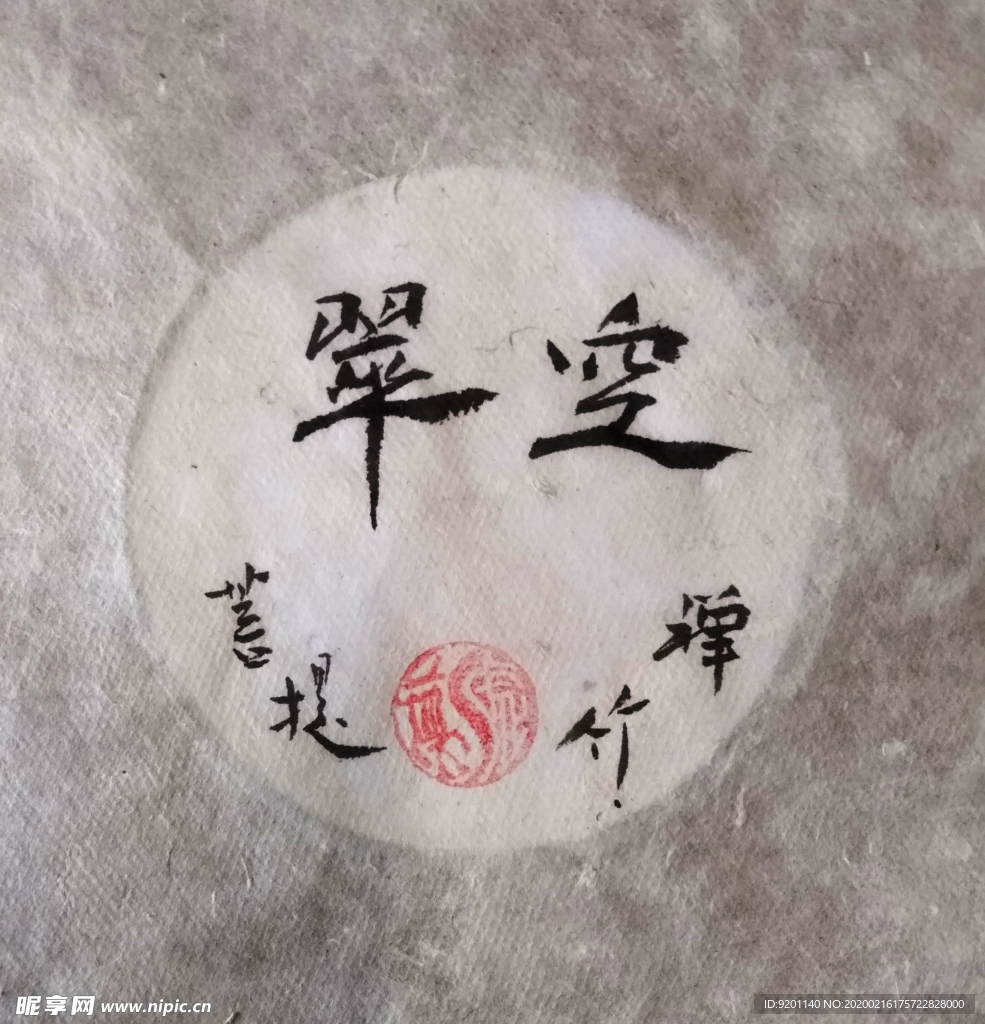 翠空
菩提
禅竹
昵享网 www.nipic.cn
ID:9201140 NO:20200216175722828000